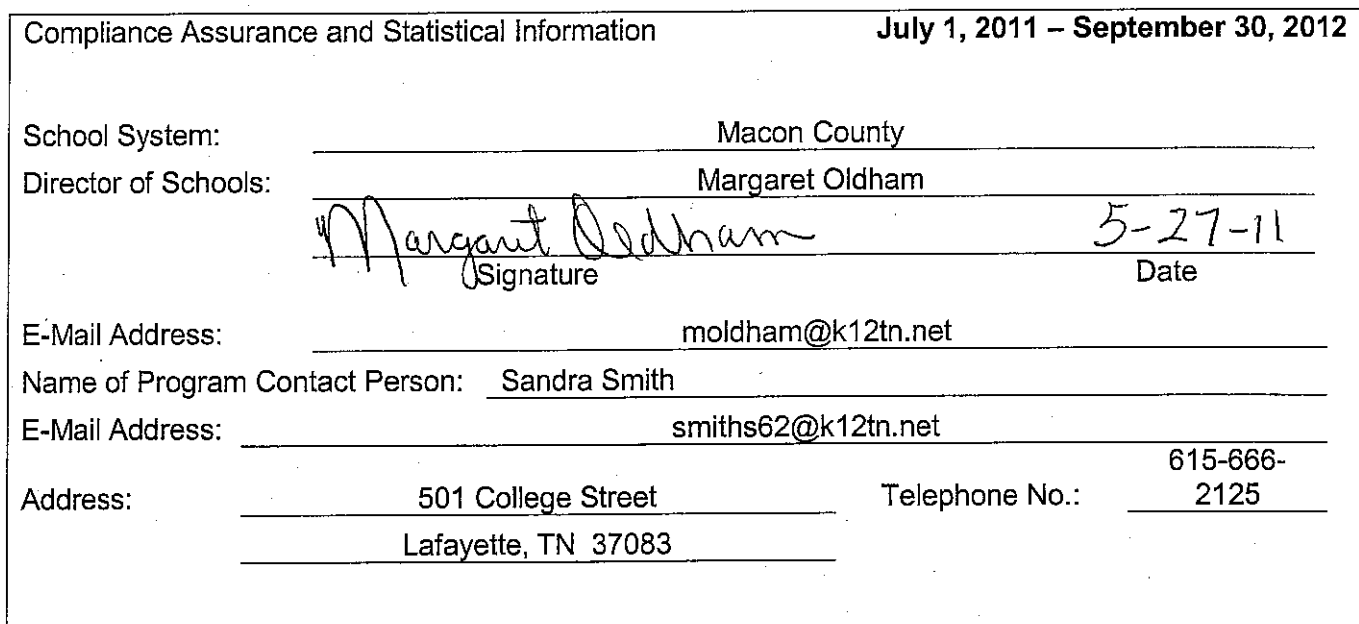 Compliance Assurance and Statistical Information July 1, 2011 – September 30, 2012
School System: Macon County
Director of Schools: Margaret Oldham
Margaret Oldham 5-27-11
Signature Date
E-Mail Address: moldham@k12tn.net
Name of Program Contact Person: Sandra Smith
E-Mail Address: smiths62@k12tn.net
615-666-
Address: 501 College Street Telephone No.: 2125
Lafayette, TN 37083